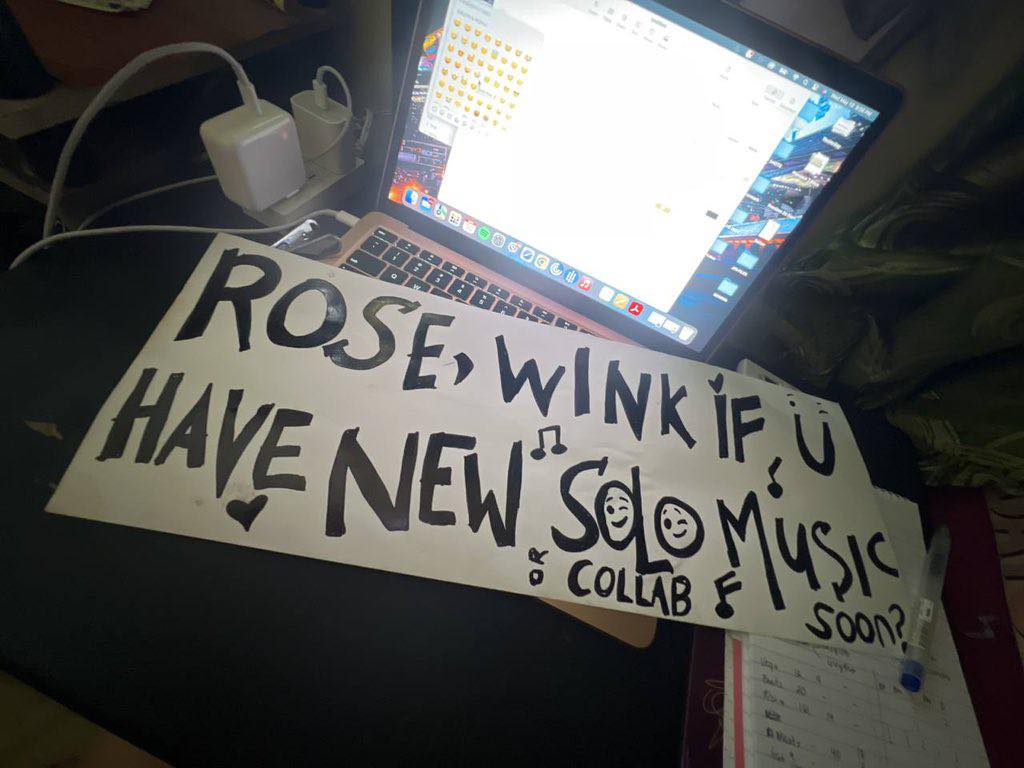 ROSE, WINK IF U
HAVE NEW SOLO MUSIC
OR COLLAB
SOON?